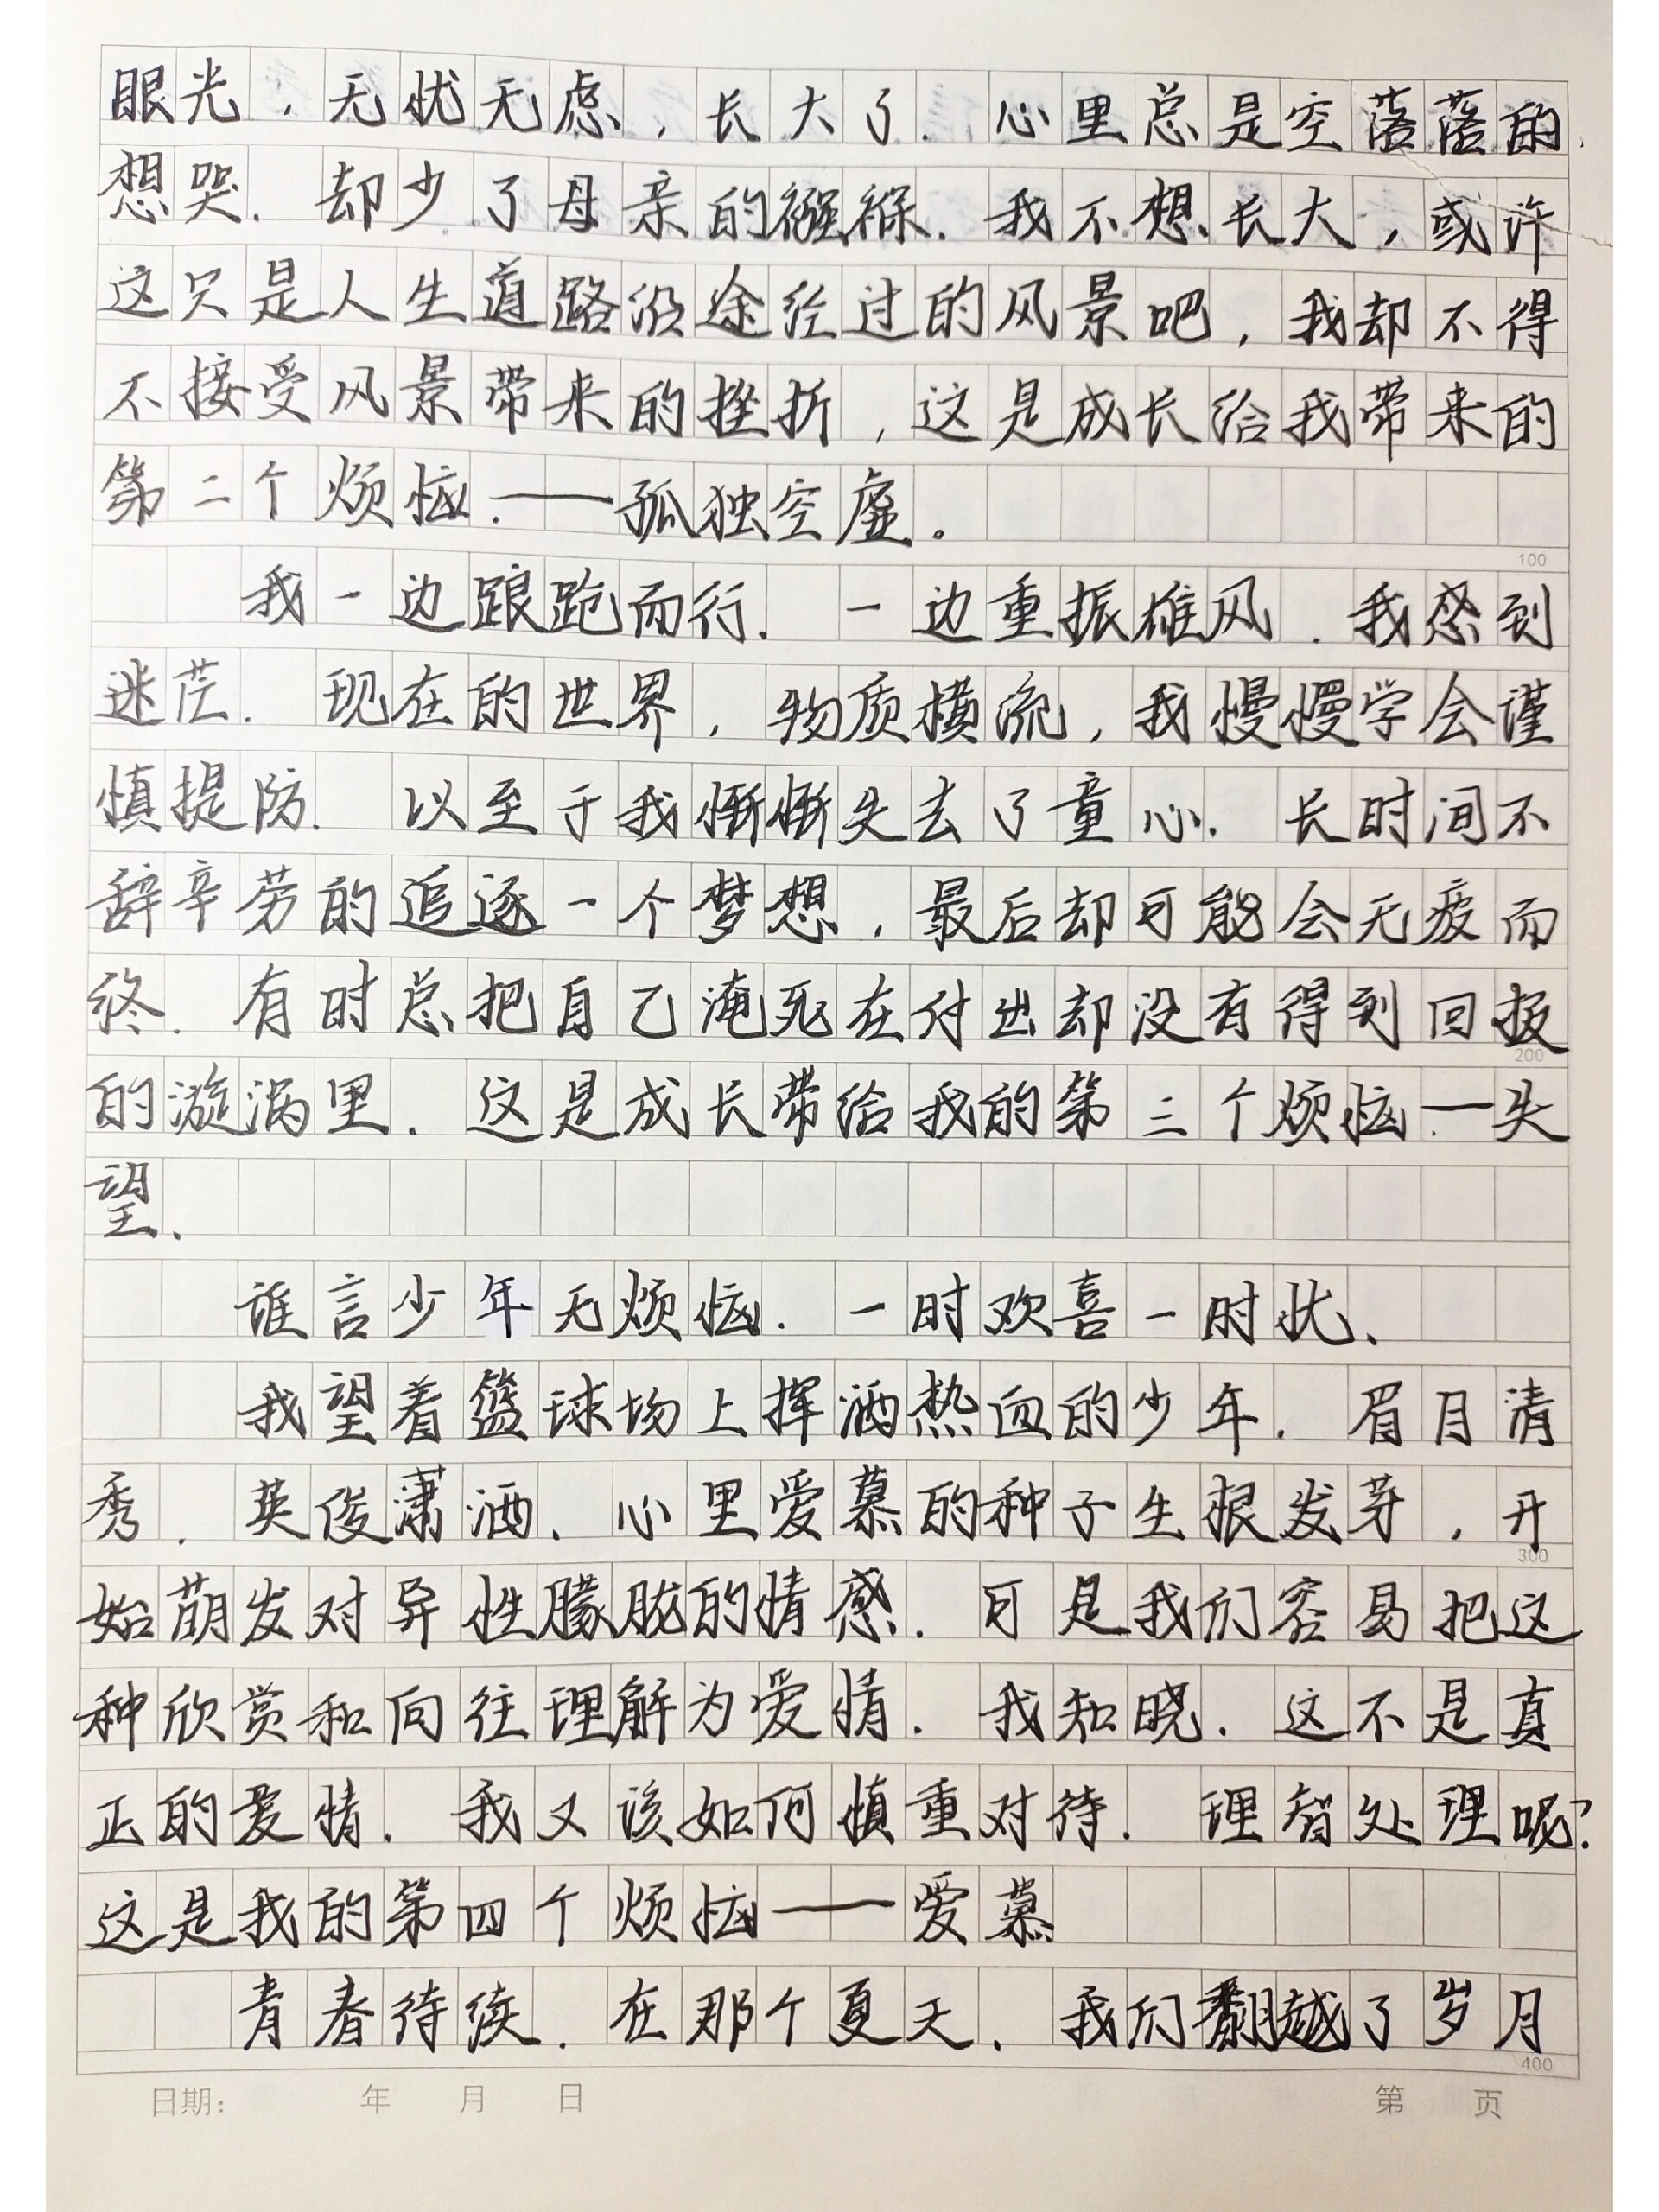 眼光，无忧无虑，长大了.心里总是空落落的,
想哭.却少了母亲的襁褓.我不想长大，或许
这只是人生道路沿途经过的风景吧，我却不得
不接受风景带来的挫折，这是成长给我带来的
第二个烦恼.——孤独空虚。
100
我一边踉跄而行.一边重振雄风.我感到
迷茫.现在的世界，物质横流，我慢慢学会谨
慎提防.以至于我惭惭失去了童心.长时间不
辞辛劳的追逐一个梦想，最后却可能会无疲而
终.有时总把自己淹死在付出却没有得到回报
200
的漩涡里.这是成长带给我的第三个烦恼.一失
望、
谁言少年无烦恼.一时欢喜一时忧、
我望着篮球场上挥洒热血的少年.眉目清
秀.英俊潇洒、心里爱慕的种子生根发芽，开
300
始萌发对异性朦胧的情感.可是我们容易把这
种欣赏和向往理解为爱情.我知晓.这不是真
正的爱情.我又该如何慎重对待.理智处理呢?
这是我的第四个烦恼——爱慕
青春待续.在那个夏天、我们翻越了岁月
400
日期： 年 月 日 第 页